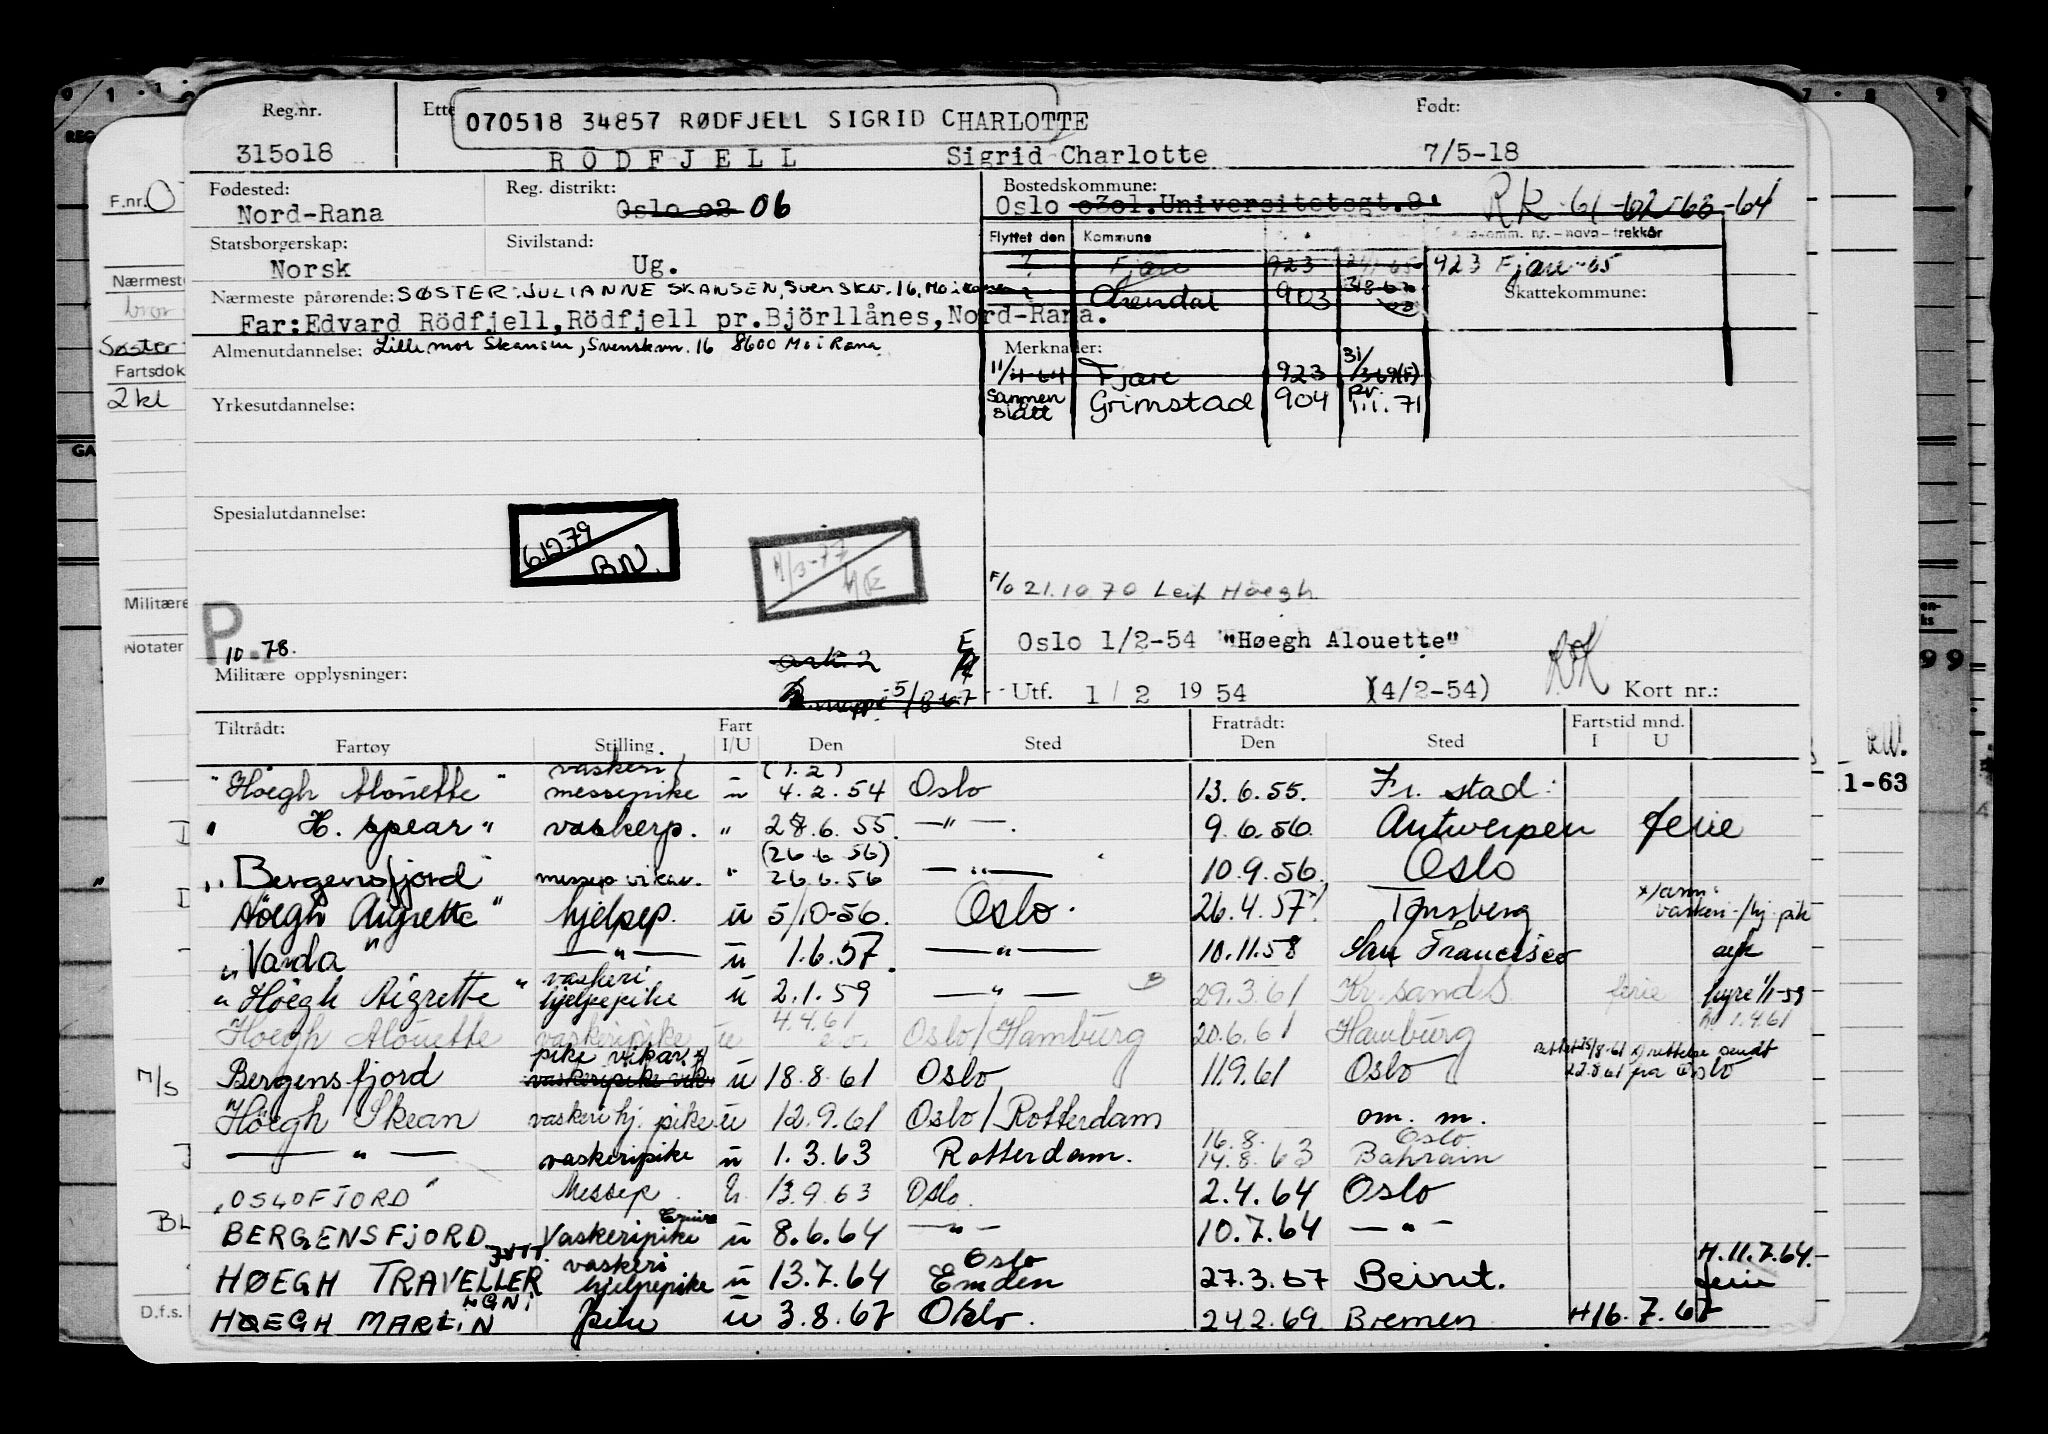 Reg.nr. Ette 070518 34857 RØDFJELL SIGRID CHARLOTTE Født:
315o18 RÖDFJELL Sigrid Charlotte 7/5-18
F.nr. O
Fødested: Reg. distrikt: Bostedskommune:
Nord-Rana Oslo o2 06 Oslo o3ol.Universitetsgt.8. RK-61-62-63-64
Statsborgerskap: Sivilstand: Flyttet den Kommune komm. nr. - navn - trekkår
Norsk Ug. ? Fjære 923 423 Fjære-65
Nærmeste pårørende: SØSTER: JULIANNE SKANSEN, Svenskv. 16, Mo i Rana Arendal 903 Skattekommune:
Far: Edvard Rödfjell, Rödfjell pr. Björllånes, Nord-Rana.
Almenutdannelse: Lillemor Skansen, Svenskvn. 16 8600 Mo i Rana Merknader:
11/11-64 Fjære 923 31/3-69(F)
Yrkesutdannelse: Sammen slått Grimstad 904 pr. 1.1.71
Nærmest
Søster
Fartsdok
2kl
GA
Spesialutdannelse:
6.12.79 BN.
11/3-77
F/o 21.10 70 Leif Höegh
Militære
Notater
P. 10.78.
Oslo 1/2-54 "Høegh Alouette"
ark. 2
Militære opplysninger: 5/8-67 Utf. 1/2 1954 (4/2-54) Kort nr.:
Tiltrådt: Fart Fratrådt: Fartstid mnd.
Fartøy Stilling I/U Den Sted Den Sted I U
"Höegh Alouette" vaskeri/messepike u (1.2) 4.2.54 Oslo 13.6.55. Fr. stad
" H. spear" vaskerp. " 28.6.55. —"— 9.6.56. Antwerpen ferie
"Bergensfjord" messep vikar. " (26.6.56) 26.6.56 —"— 10.9.56. Oslo
Höegh Aigrette" hjelpep. u 5/10-56. Oslo. 26.4.57 x/ Tønsberg x/ann. vaskeri-/hj. pik
"Varda" —"— u 1.6.57. —"— 10.11.58 San Francisco syk
"Höegh Aigrette" vaskeri hjelpepike u 2.1.59 —"— 29.3.61 Kr. sand S. ferie hyre 1/1-59
Höegh Alouette vaskeripike u 4.4.61 Oslo/Hamburg 20.6.61 Hamburg 1.4.61
M/S Bergensfjord pike vikar x) vaskeripike vik. u 18.8.61 Oslo 11.9.61 Oslo rettet 25/8-61 x) rettelse sendt 22.8.61 fra Oslo
Höegh Skean vaskeri hj. pike u 12.9.61 Oslo/Rotterdam om. m.
—"— vaskeripike u 1.3.63 Rotterdam. 16.8. 14.8.63 Oslo Bahrain
"OSLOFJORD" Messep. U. 13.9.63 Oslo. 2.4.64 Oslo
BERGENSFJORD Vaskeripike u 8.6.64 —"— 10.7.64 —"—
HØEGH TRAVELLER vaskeri hjelpepike u 13.7.64 Oslo Emden 27.3.67 Beirut. H.11.7.64. ferie
HØEGH MARLIN pike u 3.8.67 Oslo. 24.2.69. Bremen H16.7.67
D.f.s.
1-63
99